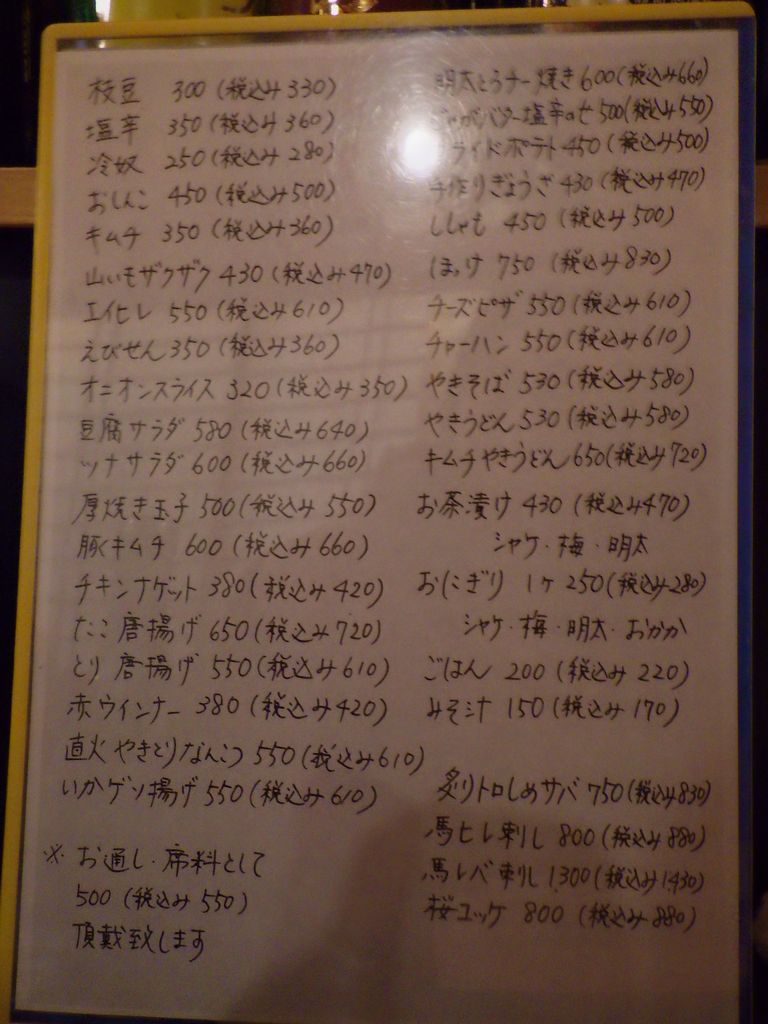 枝豆 300 (税込み330)
塩辛 350 (税込み360)
冷奴 250 (税込み280)
おしんこ 450 (税込み500)
キムチ 350 (税込み360)
山いもザクザク 430 (税込み470)
エイヒレ 550 (税込み610)
えびせん 350 (税込み360)
オニオンスライス 320 (税込み350)
豆腐サラダ 580 (税込み640)
ツナサラダ 600 (税込み660)
厚焼き玉子 500 (税込み550)
豚キムチ 600 (税込み660)
チキンナゲット 380 (税込み420)
たこ唐揚げ 650 (税込み720)
とり唐揚げ 550 (税込み610)
赤ウインナー 380 (税込み420)
直火やきとりなんこつ 550 (税込み610)
いかゲソ揚げ 550 (税込み610)
※ お通し・席料として
500 (税込み550)
頂戴致します
明太とろチー焼き 600 (税込み660)
じゃがバター塩辛のせ 500 (税込み550)
ライドポテト 450 (税込み500)
手作りぎょうざ 430 (税込み470)
ししゃも 450 (税込み500)
ほっけ 750 (税込み830)
チーズピザ 550 (税込み610)
チャーハン 550 (税込み610)
やきそば 530 (税込み580)
やきうどん 530 (税込み580)
キムチやきうどん 650 (税込み720)
お茶漬け 430 (税込み470)
シャケ・梅・明太
おにぎり 1ケ 250 (税込み280)
シャケ・梅・明太・おかか
ごはん 200 (税込み220)
みそ汁 150 (税込み170)
炙りトロしめサバ 750 (税込み830)
馬ヒレ刺し 800 (税込み880)
馬レバ刺し 1300 (税込み1430)
桜ユッケ 800 (税込み880)